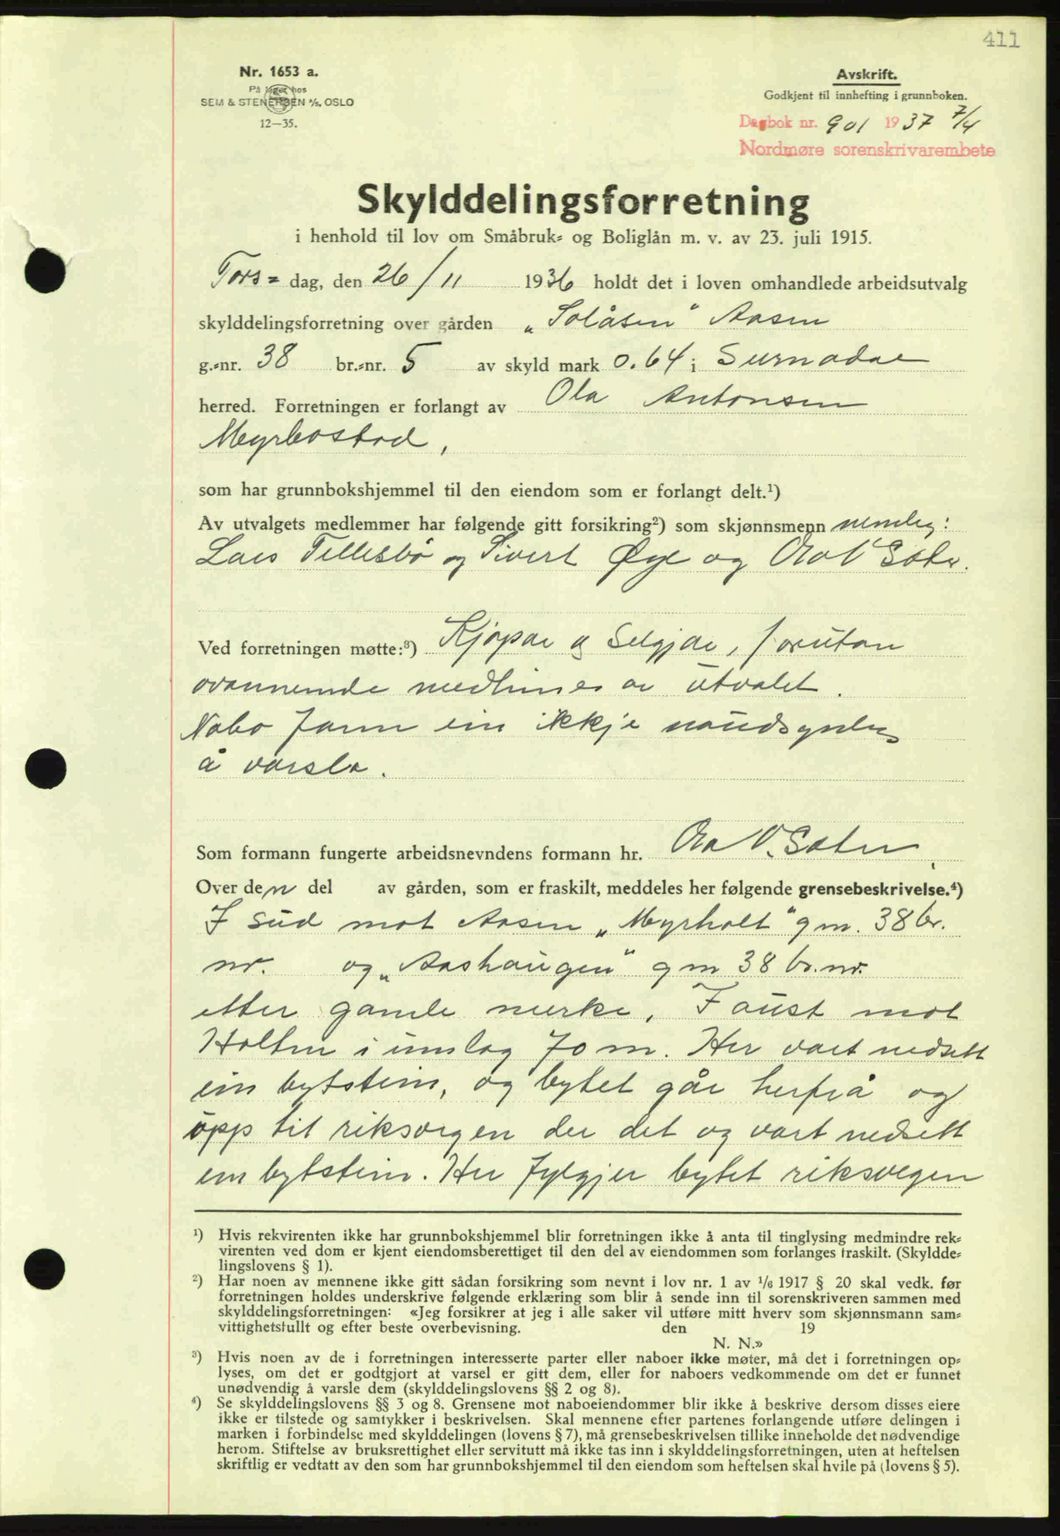 411
Nr. 1653 a.
På lager hos
SEM & STENERSEN A/S, OSLO
12-35.
Avskrift.
Godkjent til innhefting i grunnboken.
Dagbok nr. 901 1937 7/4
Nordmøre sorenskrivarembete
Skylddelingsforretning
i henhold til lov om Småbruk- og Boliglån m. v. av 23. juli 1915.
Tors- dag, den 26/11 1936 holdt det i loven omhandlede arbeidsutvalg
skylddelingsforretning over gården „Solåsen" Aasen
g.-nr. 38 br.-nr. 5 av skyld mark 0.64 i Surnadal
herred. Forretningen er forlangt av Ola Antonsen
Myrbostad,
som har grunnbokshjemmel til den eiendom som er forlangt delt.¹)
Av utvalgets medlemmer har følgende gitt forsikring²) som skjønnsmenn nemleg:
Lars Tellesbø og Sivert Øye og Ola V Sæter.
Ved forretningen møtte:³) Kjøpar og Seljar, forutan
ovannemde medlimer av utvalet.
Nabo fann ein ikkje naudsynleg
å varsla.
Som formann fungerte arbeidsnevndens formann hr. Ola V. Sæter.
Over den del av gården, som er fraskilt, meddeles her følgende grensebeskrivelse.⁴)
I sud mot Aasen „Myrholt" g nr. 38 br.
nr. og „Aashaugen" g nr 38 br. nr.
etter gamle merke. I aust mot
Holten i umlag 70 m. Her vart nedsett
ein bytstein, og bytet går herfrå og
opp til riksvegen der det og vart nedsett
ein bytstein. Her fylgjer bytet riksvegen
¹) Hvis rekvirenten ikke har grunnbokshjemmel blir forretningen ikke å anta til tinglysing medmindre rek-
virenten ved dom er kjent eiendomsberettiget til den del av eiendommen som forlanges fraskilt. (Skyldde-
lingslovens § 1).
²) Har noen av mennene ikke gitt sådan forsikring som nevnt i lov nr. 1 av 1/6 1917 § 20 skal vedk. før
forretningen holdes underskrive følgende erklæring som blir å sende inn til sorenskriveren sammen med
skylddelingsforretningen: «Jeg forsikrer at jeg i alle saker vil utføre mitt hverv som skjønnsmann sam-
vittighetsfullt og efter beste overbevisning. den 19
N. N.»
³) Hvis noen av de i forretningen interesserte parter eller naboer ikke møter, må det i forretningen op-
lyses, om det er godtgjort at varsel er gitt dem, eller for naboers vedkommende om det er funnet
unødvendig å varsle dem (skylddelingslovens §§ 2 og 8).
⁴) Se skylddelingslovens §§ 3 og 8. Grensene mot naboeiendommer blir ikke å beskrive dersom disses eiere
ikke er tilstede og samtykker i beskrivelsen. Skal mennene efter partenes forlangende utføre delingen i
marken i forbindelse med skylddelingen (lovens § 7), må grensebeskrivelsen tillike inneholde det nødvendige
herom. Stiftelse av bruksrettighet eller servitutt må ikke tas inn i skylddelingsforretningen, uten at heftelsen
skriftlig er vedtatt av den som har grunnbokshjemmel til den eiendom som heftelsen skal hvile på (lovens § 5).